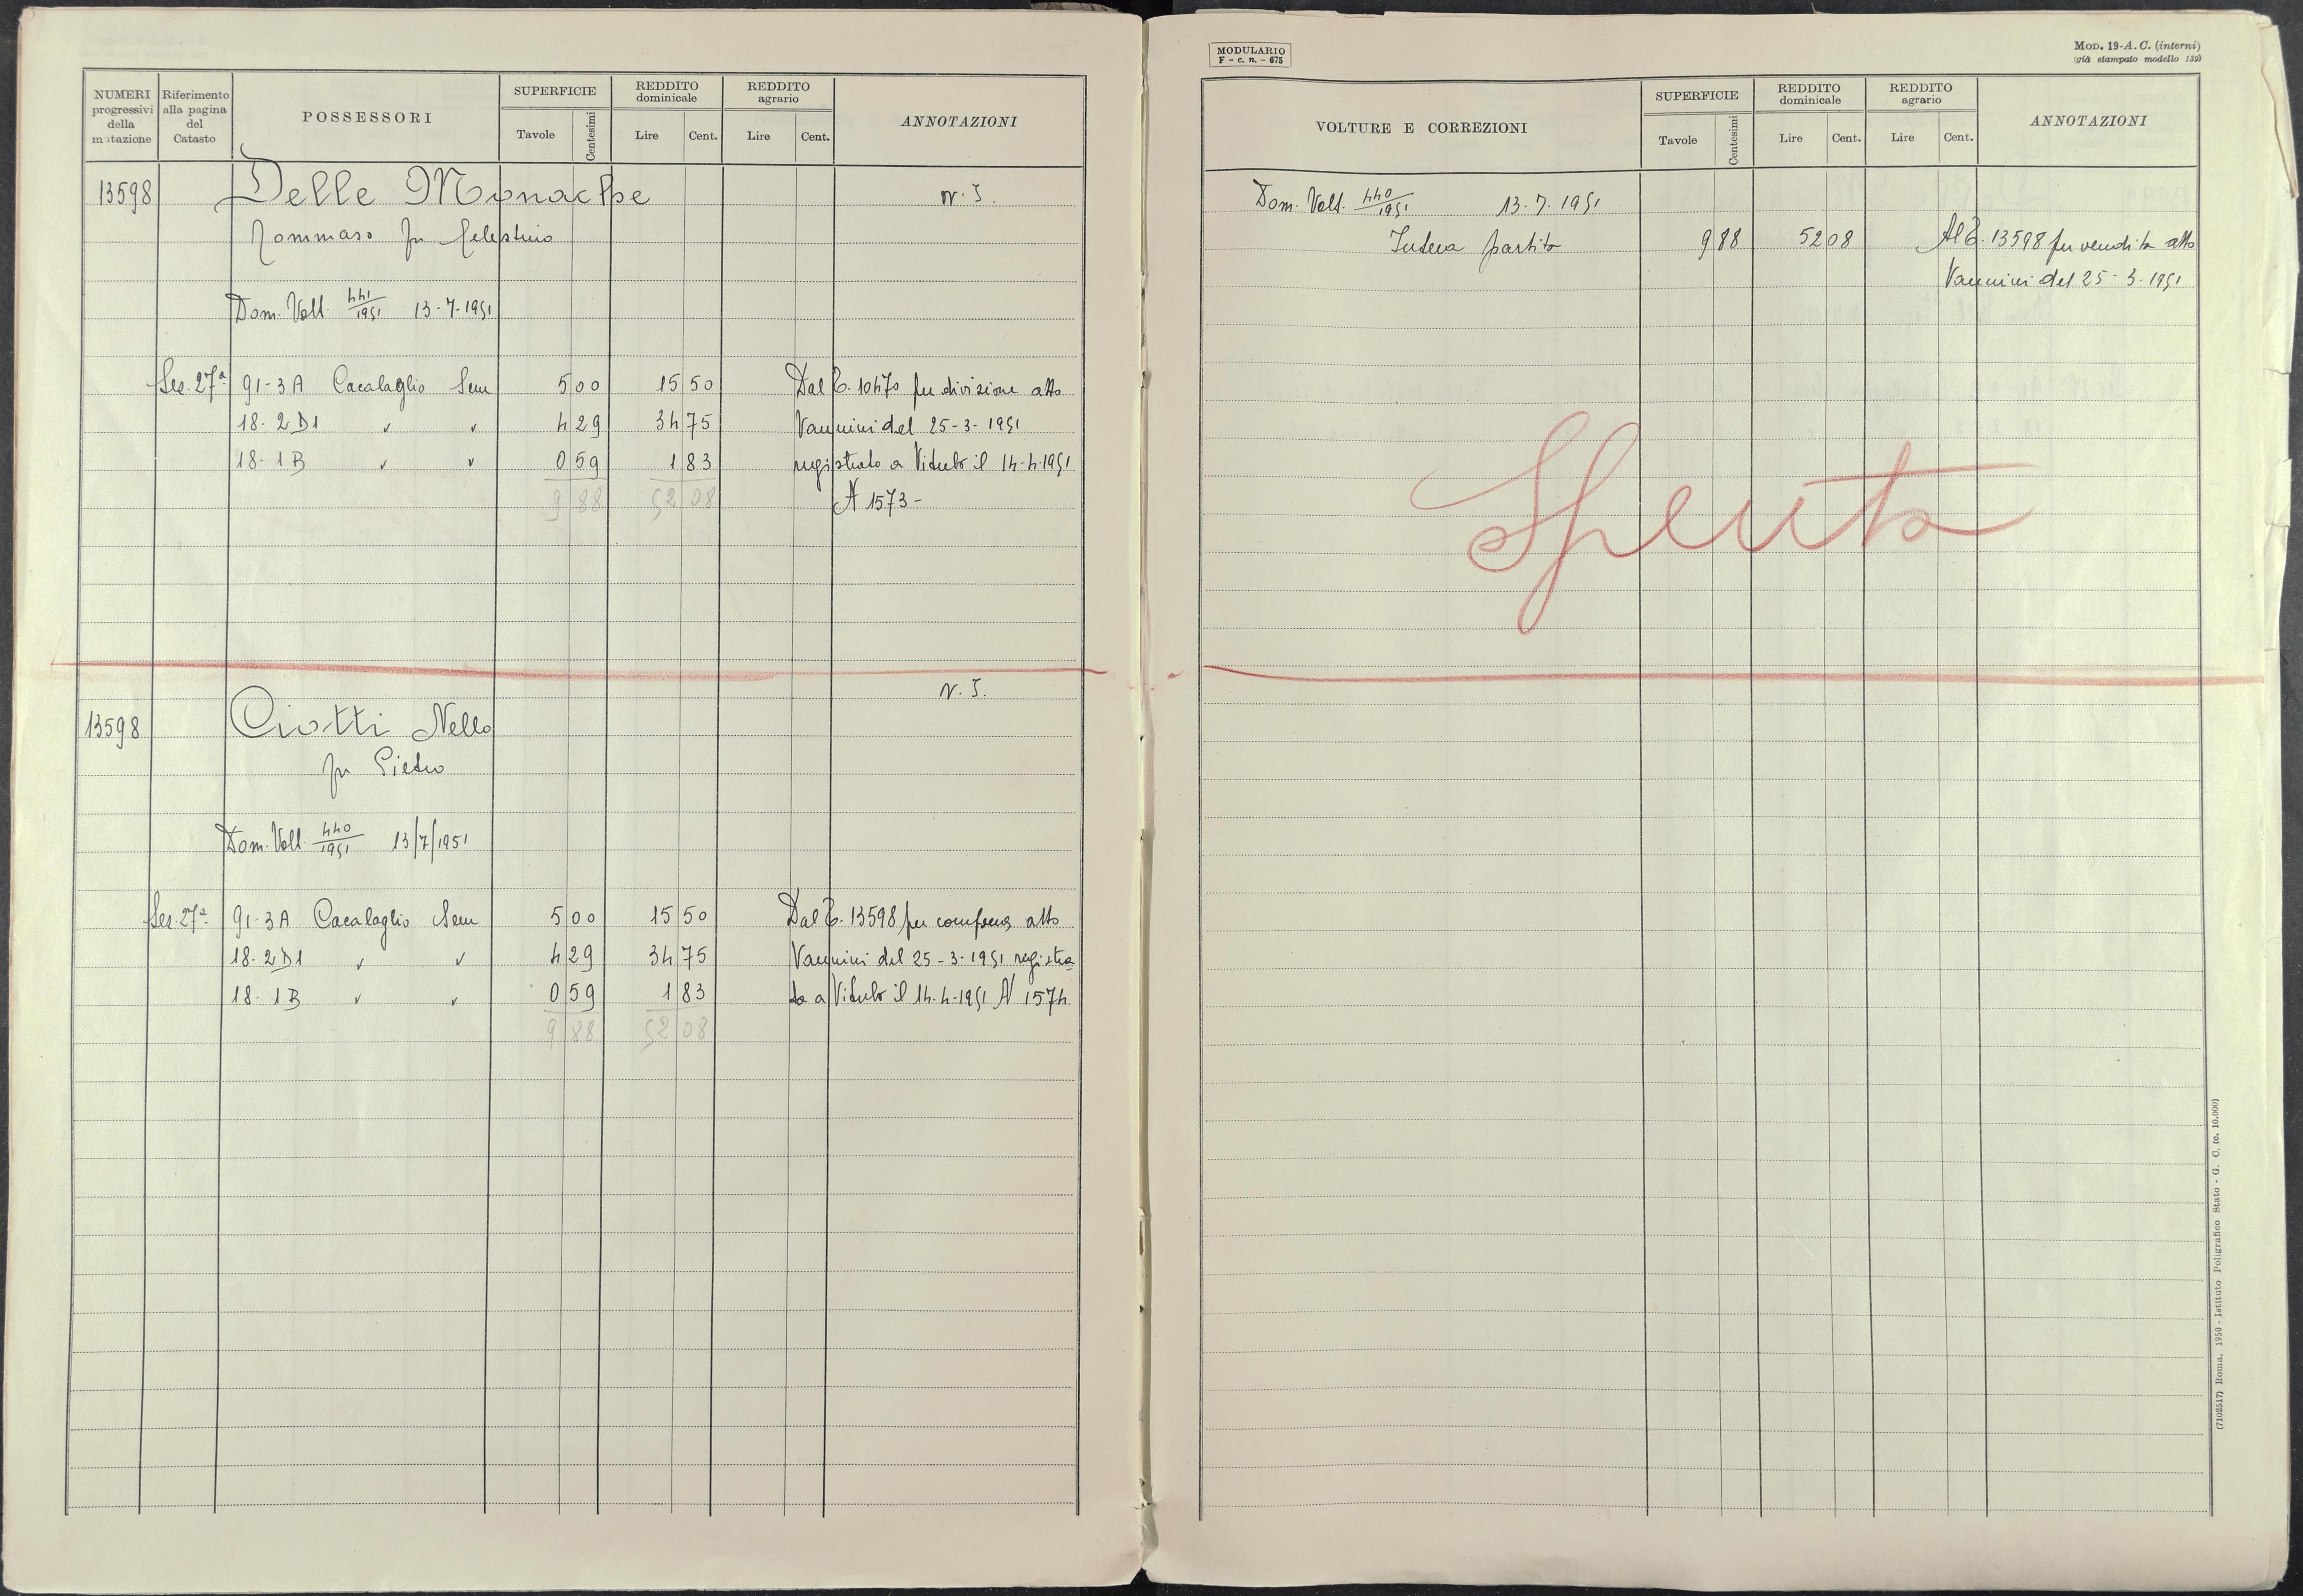 NUMERI progressivi della mutazione
Riferimento alla pagina del Catasto
POSSESSORI
SUPERFICIE
Tavole
Centesimi
REDDITO dominicale
Lire
Cent.
REDDITO agrario
Lire
Cent.
ANNOTAZIONI
13598 Delle Monache N. I.
Tommaso fu Celestino
Dom. Volt. 441/1951 13-7-1951
Sez. 27ª 91-3A Cacalaglio Sem 5 00 15 50 Dal C. 10470 per divisione atto
18-2D1 " " 4 29 34 75 Vannini del 25-3-1951
18-1B " " 0 59 1 83 registrato a Viterbo il 14-4-1951
9 88 52 08 N 1573-
N. I.
13598 Ciotti Nello
fu Pietro
Dom. Volt. 440/1951 13/7/1951
Sez. 27ª 91-3A Cacalaglio Sem 5 00 15 50 Dal C. 13598 per compera atto
18-2D1 " " 4 29 34 75 Vannini del 25-3-1951 registra
18-1B " " 0 59 1 83 to a Viterbo il 14-4-1951 N 1574
9 88 52 08
MODULARIO
F - c. n. - 675
MOD. 19-A. C. (interni)
(già stampato modello 139)
VOLTURE E CORREZIONI
SUPERFICIE
Tavole
Centesimi
REDDITO dominicale
Lire
Cent.
REDDITO agrario
Lire
Cent.
ANNOTAZIONI
Dom. Volt. 440/1951 13-7-1951
Intera partita 9 88 52 08 Al C. 13598 per vendita atto
Vannini del 25-3-1951
Spenta
(7102517) Roma, 1950 - Istituto Poligrafico Stato - G. C. (c. 10.000)